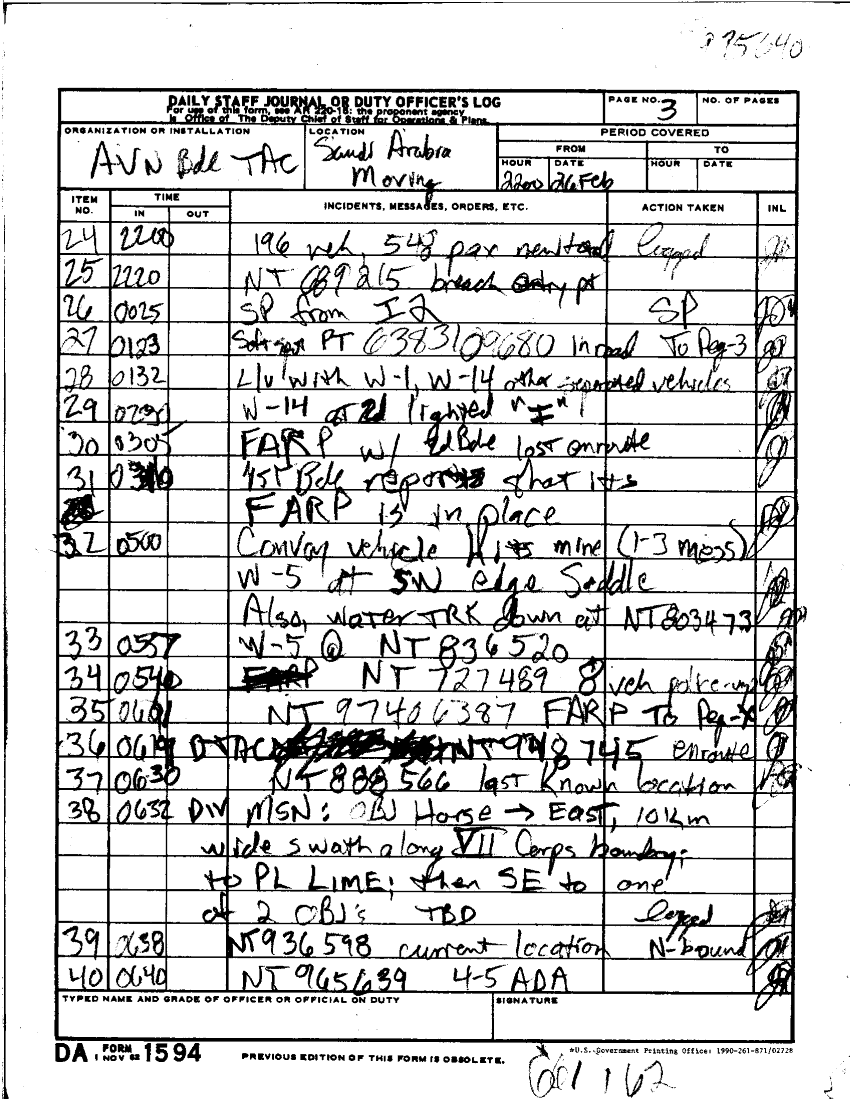 975640
DAILY STAFF JOURNAL OR DUTY OFFICER'S LOG
For use of this form, see AR 220-15: the proponent agency
is Office of The Deputy Chief of Staff for Operations & Plans.
PAGE NO. 3
NO. OF PAGES
ORGANIZATION OR INSTALLATION
AVN Bde TAC
LOCATION
Saudi Arabia
Moving
PERIOD COVERED
FROM TO
HOUR DATE HOUR DATE
2200 26 Feb
ITEM NO. TIME IN OUT INCIDENTS, MESSAGES, ORDERS, ETC. ACTION TAKEN INL
24 2200 196 veh, 548 pax logged
25 2220 NT 689215 breach entry pt
26 0025 SP from I2 SP
27 0123 PT 6383109680 In road To Peg-3
28 0132 L/u with W-1, W-14 other separated vehicles
29 W-14 at 2d lighted "I"
30 0305 FARP w/ 2d Bde lost enroute
31 1st Bde reports that its
FARP is in place
32 0500 Convoy vehicle Hits mine (1-3 mess)
W-5 at SW edge Saddle
Also, water TRK down at NT803473
33 0537 W-5 @ NT 836520
34 0540 NT 727489 8 veh
35 0601 NT 97406387 FARP To Peg-
36 0619 DTAC NT948745 enroute
37 0630 NT 888566 last Known location
38 0632 DIV MSN: OBJ Horse → East, 10 km
wide swath along VII Corps boundary;
to PL LIME; then SE to one
of 2 OBJ's TBD logged
39 0638 NT936598 current location N-bound
40 0640 NT 965639 4-5 ADA
TYPED NAME AND GRADE OF OFFICER OR OFFICIAL ON DUTY
SIGNATURE
DA FORM 1 NOV 62 1594
PREVIOUS EDITION OF THIS FORM IS OBSOLETE.
*U.S. Government Printing Office: 1990-261-871/02728